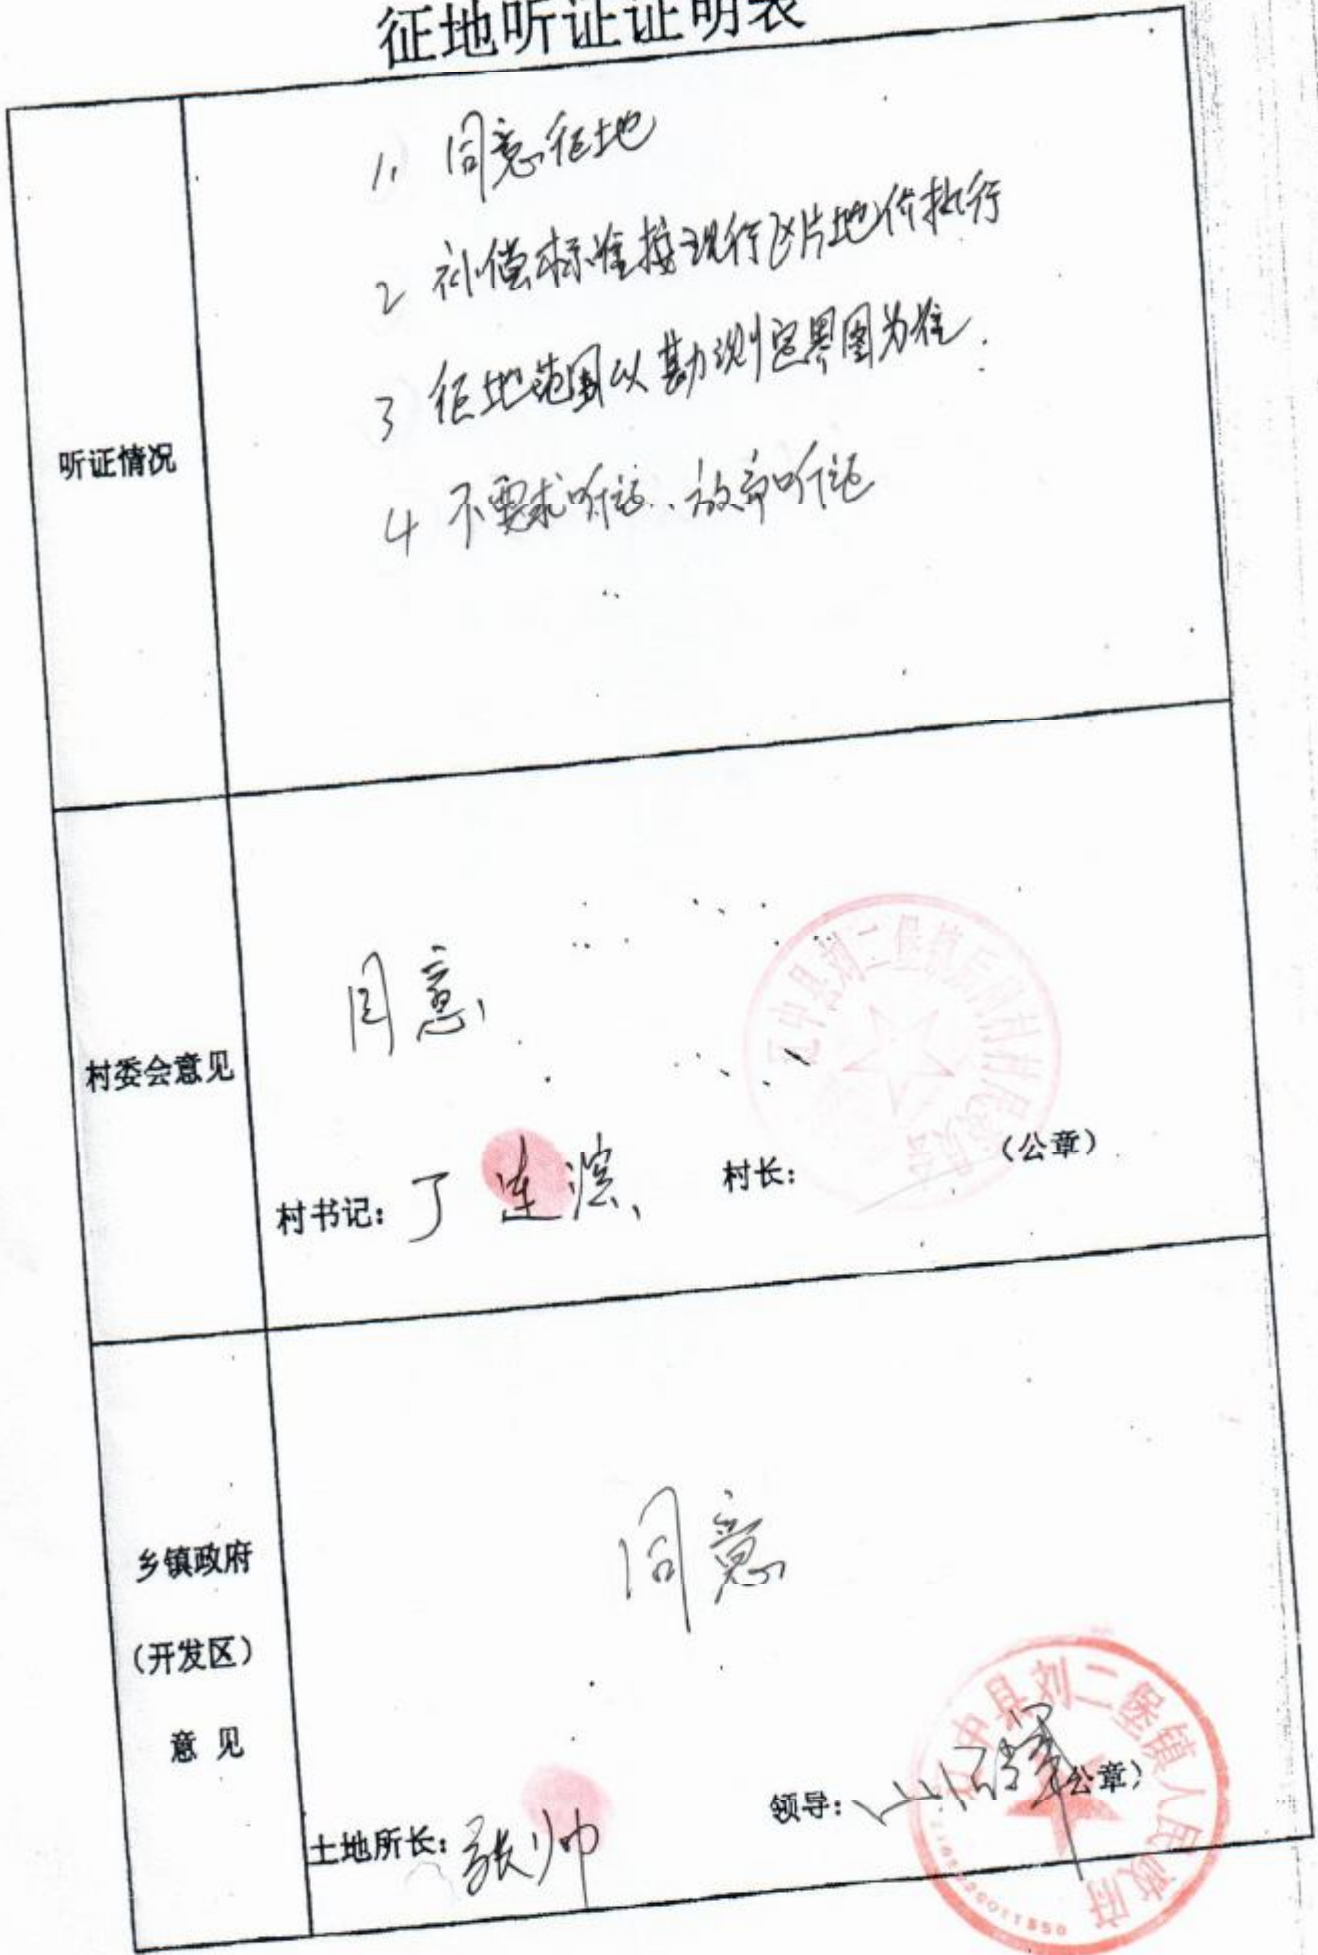 征地听证证明表
听证情况
1. 同意征地
2 补偿标准按现行区片地价执行
3 征地范围以勘测定界图为准.
4 不要求听证. 放弃听证
村委会意见
同意
村书记: 丁连滨
村长:
(公章)
县刘二堡镇
村村民委员会
乡镇政府
(开发区)
意 见
同意
土地所长: 张帅
领导:
公章)
中县刘二堡镇人民政府